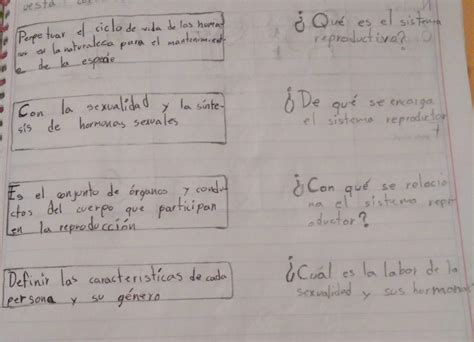 Perpetuar el ciclo de vida de los human
en la naturaleza para el mantenimient
de la especie
¿Qué es el sistema
reproductivo?
Con la sexualidad y la sínte-
sis de hormonas sexuales
¿De qué se encarga
el sistema reproductor
Es el conjunto de órganos y condu
ctos del cuerpo que participan
en la reproducción
¿Con qué se relacio
na el sistema repr
oductor?
Definir las características de cada
persona y su género
¿Cuál es la labor de la
sexualidad y sus hormonas